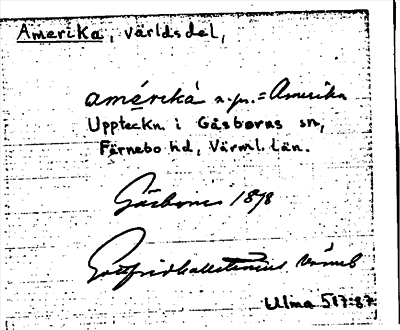 Amerika, världsdel,
amériká n.pr. = Amerika
Uppteckn. i Gåsborns sn,
Färnebo hd, Värml. län.
Gåsborn 1878
Gottfrid Kallstenius Värml
Ulma 517:87